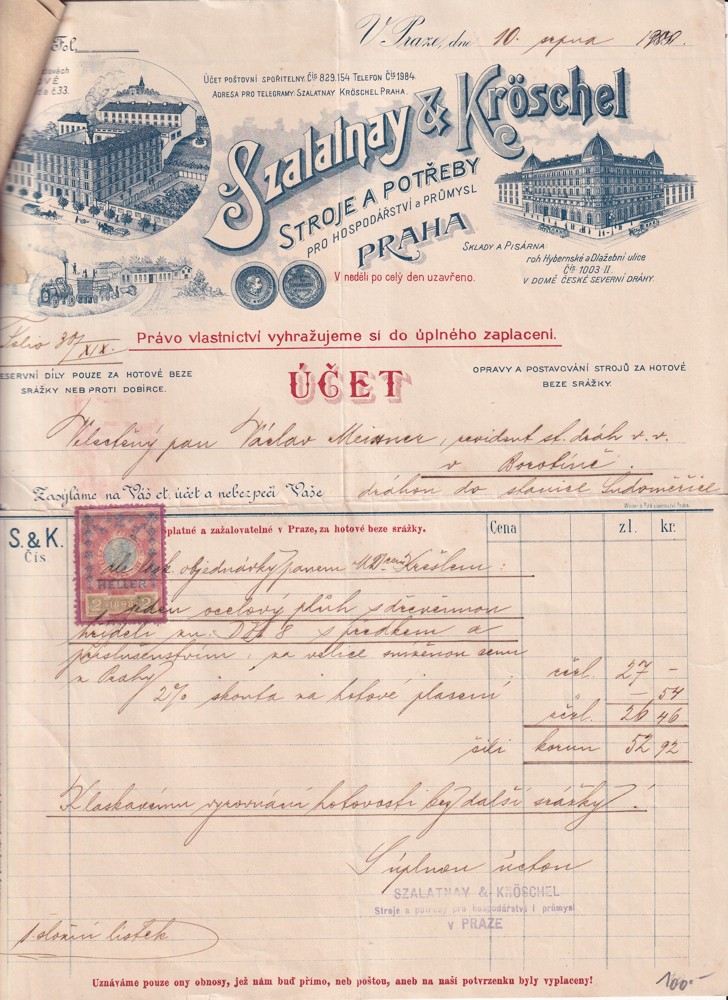 Fol.
V Praze, dne 10. srpna 1900.
č. 33.
ÚČET POŠTOVNÍ SPOŘITELNY. Čís 829.154 TELEFON Čís 1984.
ADRESA PRO TELEGRAMY: SZALATNAY KRÖSCHEL PRAHA.
Szalatnay & Kröschel
STROJE A POTŘEBY
PRO HOSPODÁŘSTVÍ a PRŮMYSL
PRAHA
V neděli po celý den uzavřeno.
SKLADY A PISÁRNA:
roh Hybernské a Dlažební ulice
Čís. 1003 II.
V DOMĚ ČESKÉ SEVERNÍ DRÁHY.
Folio 30/XIX.
Právo vlastnictví vyhražujeme si do úplného zaplacení.
RESERVNÍ DÍLY POUZE ZA HOTOVÉ BEZE
SRÁŽKY NEB PROTI DOBÍRCE.
ÚČET
OPRAVY A POSTAVOVÁNÍ STROJŮ ZA HOTOVÉ
BEZE SRÁŽKY.
Velectěný pan Václav Meixner, revident st. dráh v. v.
v Borotíně.
Zasýláme na Váš ct. účet a nebezpečí Vaše dráhou do stanice Sudoměřice
S. & K.
Čís
platné a zažalovatelné v Praze, za hotové beze srážky.
Cena
zl.
kr.
HELLER
2 1898 2
dle lask. objednávky panem Krešlem:
1 jeden ocelový pluh s dřevěnnou
hřídelí zn: 8 s předkem a
příslušenstvím, za velice sníženou cenu
z Prahy zl. 27 –
2% skonta na hotové placení – 54
zl. 26 46
čili korun 52 92
K laskavému vyrovnání hotovosti bez další srážky!
S úplnou úctou
SZALATNAY & KRÖSCHEL
Stroje a potřeby pro hospodářství i průmysl
V PRAZE
1 složní lístek
Uznáváme pouze ony obnosy, jež nám buď přímo, neb poštou, aneb na naši potvrzenku byly vyplaceny!
100.-